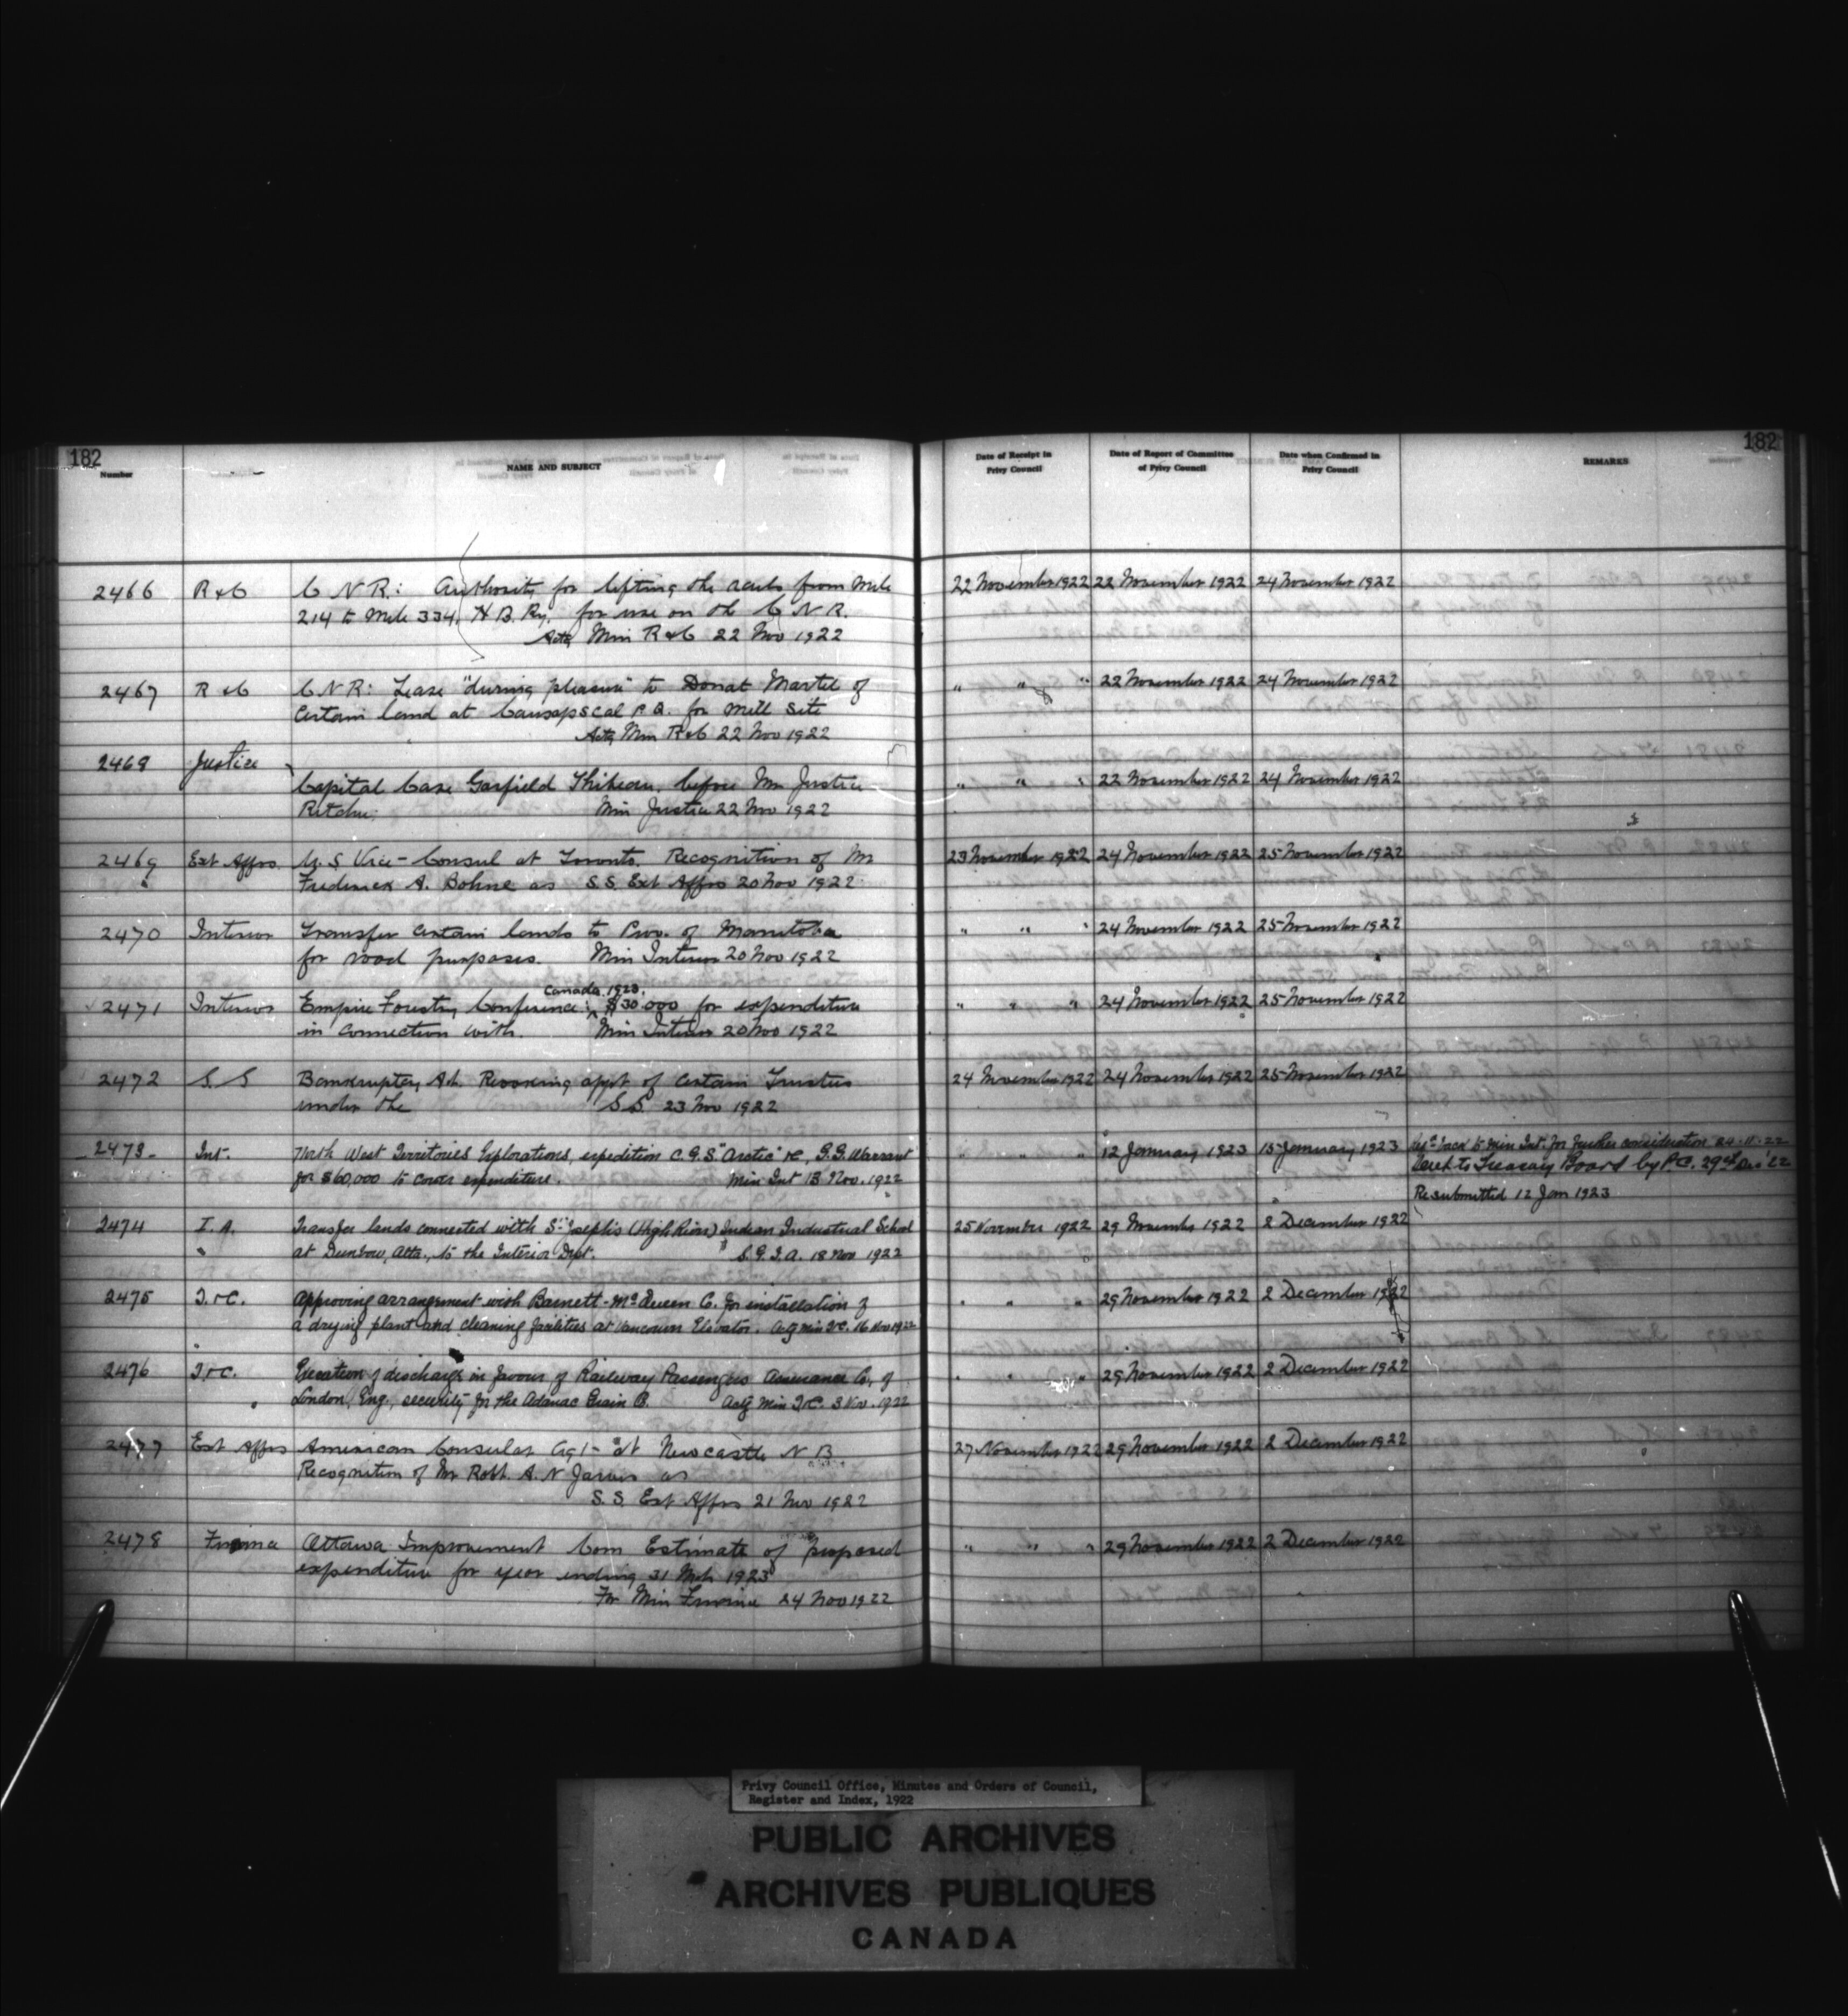 182
182
Number
NAME AND SUBJECT
Date of Receipt in Privy Council
Date of Report of Committee of Privy Council
Date when Confirmed in Privy Council
REMARKS
2466 R & C C N R: Authority for lifting the rails from Mile 22 November 1922 22 November 1922 24 November 1922
214 to Mile 334, H. B. Ry. for use on the C N R.
Actg Min R & C 22 Nov 1922
2467 R & C C N R: Lease "during pleasure" to Donat Martel of " " " 22 November 1922 24 November 1922
Certain land at Causapscal P.Q. for Mill Site
Actg Min R & C 22 Nov 1922
2468 Justice
Capital Case Garfield before Mr Justice " " " 22 November 1922 24 November 1922
Ritchie. Min Justice 22 Nov 1922
2469 Ext Affrs. U.S Vice-Consul at Toronto. Recognition of Mr 23 November 1922 24 November 1922 25 November 1922
Frederick A. Bohne as S.S. Ext Affrs 20 Nov 1922
2470 Interior Transfer certain lands to Prov. of Manitoba " " " 24 November 1922 25 November 1922
for road purposes. Min Interior 20 Nov 1922
Canada 1923.
2471 Interior Empire Forestry Conference: ^ $30.000 for expenditure " " " 24 November 1922 25 November 1922
in connection with. Min Interior 20 Nov 1922
2472 S. S Bankruptcy Act. Revoking appt of certain Trustees 24 November 1922 24 November 1922 25 November 1922
under the S.S. 23 Nov 1922
2473 Int. North West Territories Explorations, expedition C.G.S. "Arctic" &c, G.G. Warrant " " " 12 January 1923 15 January 1923 back to Min Int. for further consideration 24-11-22
for $60,000 to cover expenditure. Min Int 13 Nov. 1922 to Treasury Board by P.C. 29th Dec '22
Resubmitted 12 Jan 1923
2474 I. A. Transfer lands connected with St. Joseph's (High River) Indian Industrial School 25 November 1922 29 November 1922 2 December 1922
at Dunbow, Alta., to the Interior Dept. S.G.I.A. 18 Nov 1922
2475 T. & C. Approving arrangement with Barnett-McQueen Co. for installation of " " " 29 November 1922 2 December 1922
a drying plant and cleaning facilities at Vancouver Elevator. Actg Min T&C. 16 Nov 1922
2476 T. & C. Execution of discharge in favour of Railway Passengers Assurance Co, of " " " 29 November 1922 2 December 1922
London, Eng., security for the Adanac Grain Co. Actg Min T&C. 3 Nov. 1922
2477 Ext Affrs American Consular Agt- at Newcastle N.B. 27 November 1922 29 November 1922 2 December 1922
Recognition of Mr Robt. A. N Jarvis as
S.S. Ext Affrs 21 Nov 1922
2478 Finance Ottawa Improvement Com Estimate of proposed " " " 29 November 1922 2 December 1922
expenditure for year ending 31 Mch 1923
For Min Finance 24 Nov 1922
Privy Council Office, Minutes and Orders of Council,
Register and Index, 1922
PUBLIC ARCHIVES
ARCHIVES PUBLIQUES
CANADA